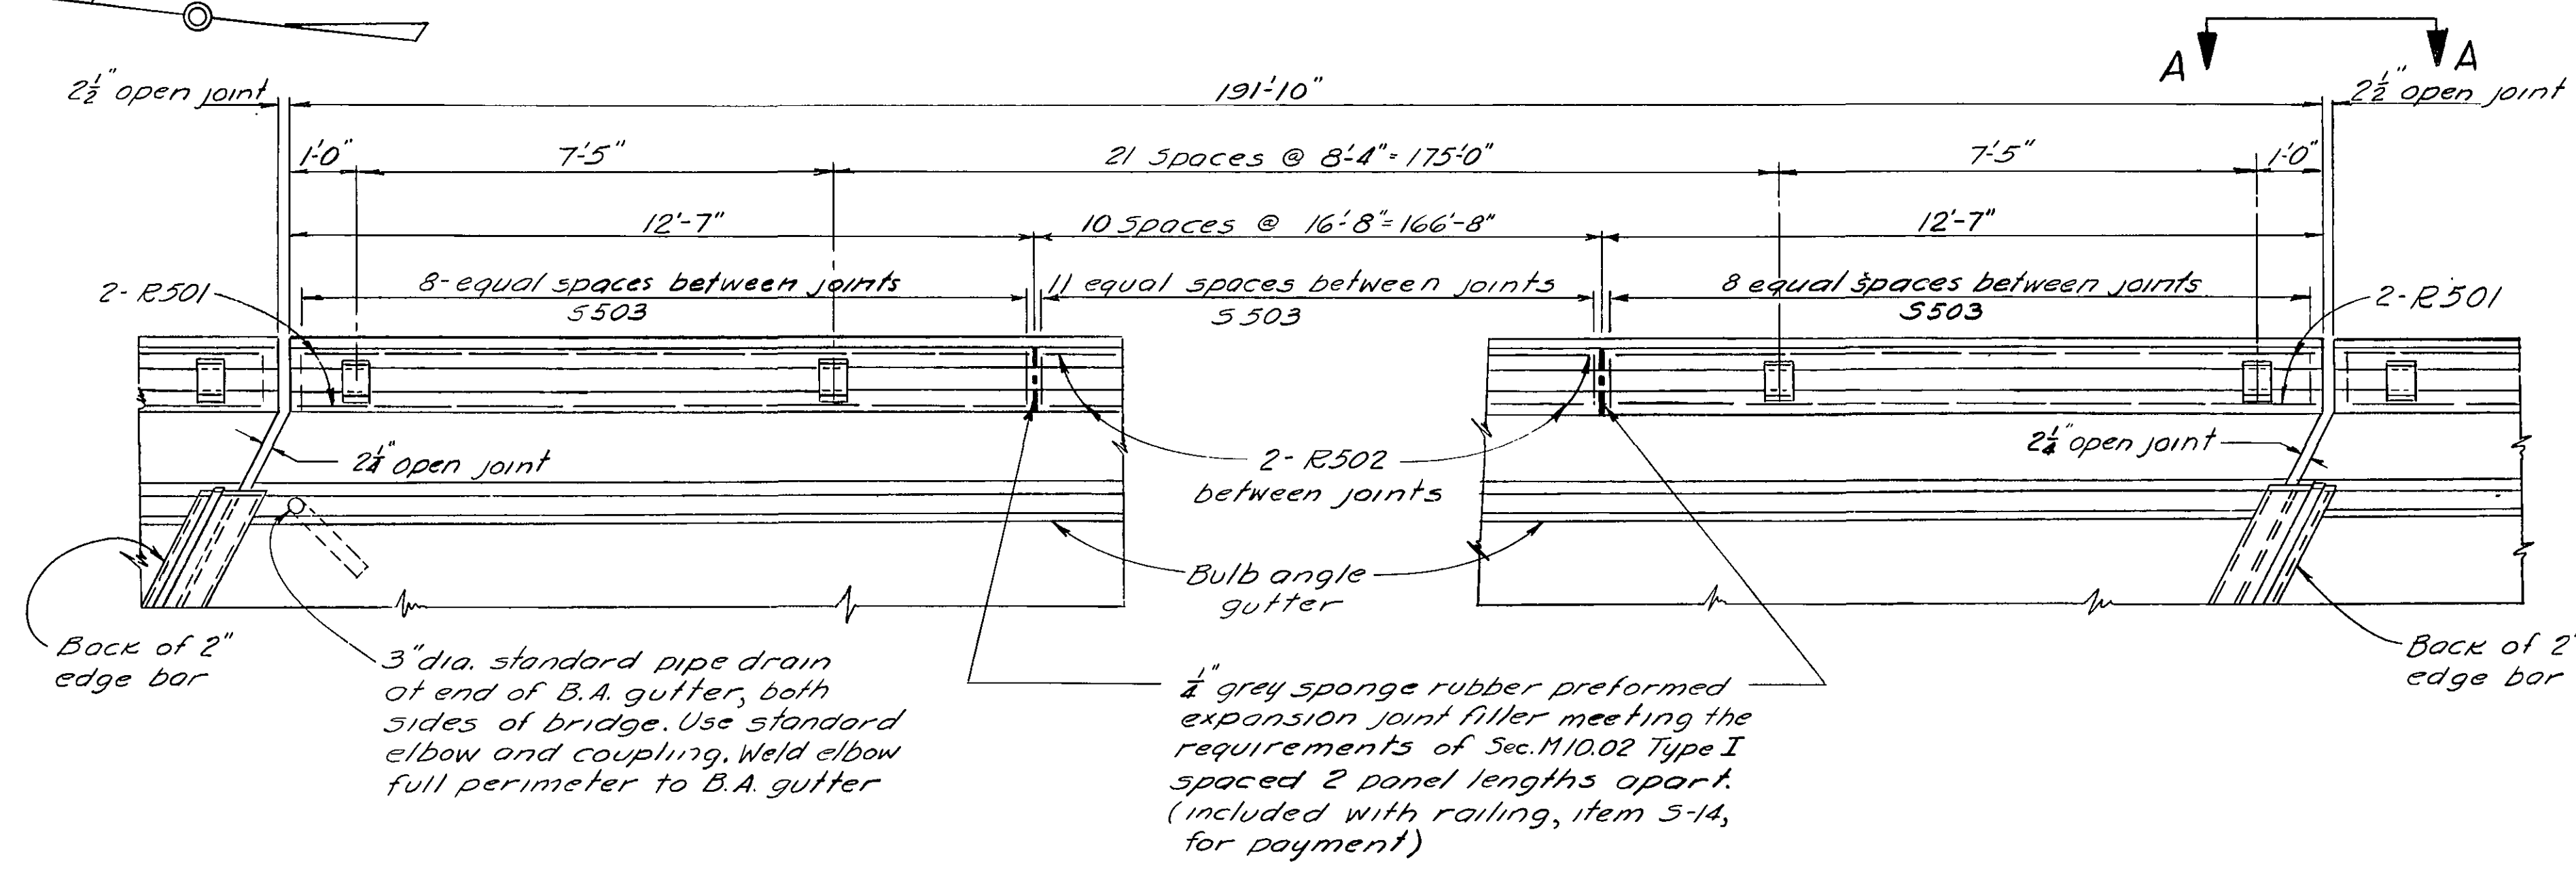 A A
2½" open joint 191'-10" 2½" open joint
1'-0" 7'-5" 21 Spaces @ 8'-4"=175'-0" 7'-5" 1'-0"
12'-7" 10 Spaces @ 16'-8"=166'-8" 12'-7"
2-R501 8-equal spaces between joints 11 equal spaces between joints 8 equal spaces between joints 2-R501
S503 S503 S503
2¼" open joint 2-R502 2¼" open joint
between joints
Bulb angle
gutter
Back of 2"
edge bar
3" dia. standard pipe drain
at end of B.A. gutter, both
sides of bridge. Use standard
elbow and coupling. Weld elbow
full perimeter to B.A. gutter
¼" grey sponge rubber preformed
expansion joint filler meeting the
requirements of Sec. M10.02 Type I
spaced 2 panel lengths apart.
(included with railing, item S-14,
for payment)
Back of 2"
edge bar